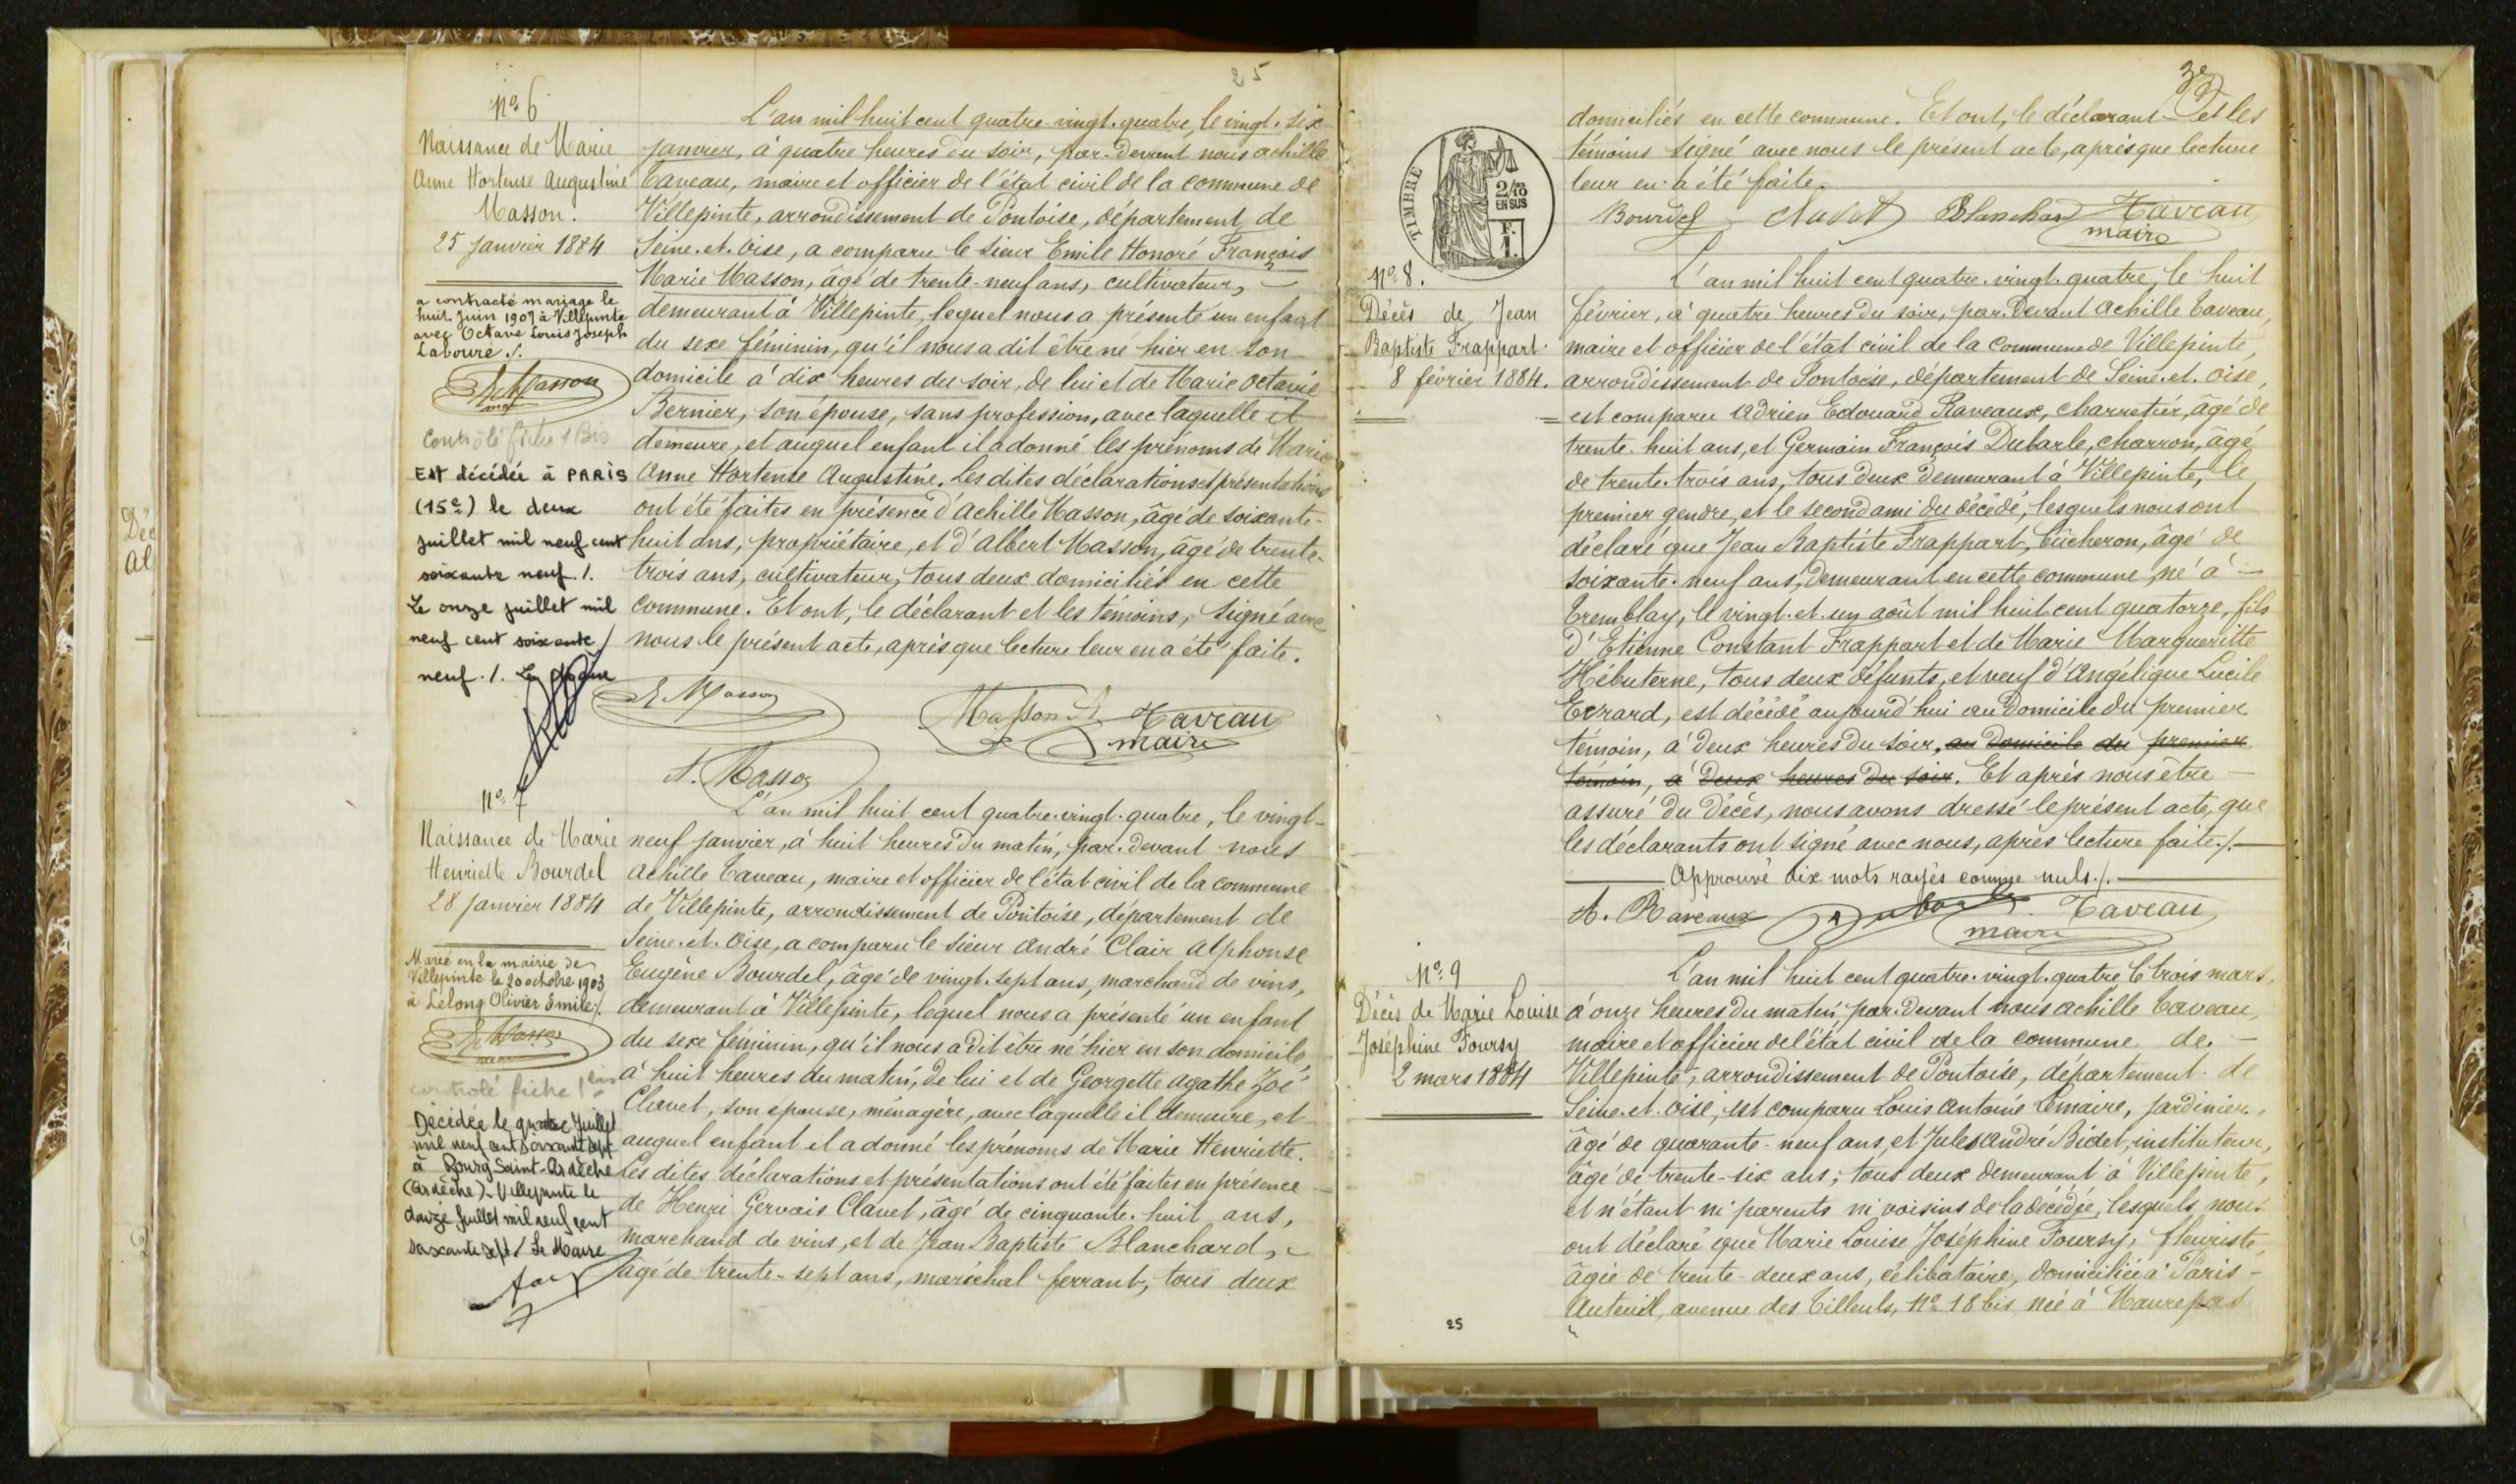 25
Nº 6
Naissance de Marie
Anne Hortense Augustine
Masson.
25 Janvier 1884
a contracté mariage le
huit Juin 1907 à Villepinte
avec Octave Louis Joseph
Laboure ./.
Masson
Contrôlé fiche 1 Bis
Est décédée à PARIS
(15e) le deux
juillet mil neuf cent
soixante neuf ./.
Le onze juillet mil
neuf cent soixante
neuf ./. Le Maire
L'an mil huit cent quatre-vingt-quatre, le vingt-six
Janvier, à quatre heures du soir, par-devant nous Achille
Taveau, maire et officier de l'état civil de la commune de
Villepinte, arrondissement de Pontoise, département de
Seine-et-Oise, a comparu le sieur Emile Honoré François
Marie Masson, âgé de trente-neuf ans, cultivateur,
demeurant à Villepinte, lequel nous a présenté un enfant
du sexe féminin, qu'il nous a dit être né hier en son
domicile à dix heures du soir, de lui et de Marie Octavie
Bernier, son épouse, sans profession, avec laquelle il
demeure, et auquel enfant il a donné les prénoms de Marie
Anne Hortense Augustine. Les dites déclarations et présentations
ont été faites en présence d'Achille Masson, âgé de soixante-
huit ans, propriétaire, et d'Albert Masson, âgé de trente-
trois ans, cultivateur, tous deux domiciliés en cette
commune. Et ont, le déclarant et les témoins, signé avec
nous le présent acte, après que lecture leur en a été faite.
E. Masson
Masson A
Taveau
maire
A. Masson
Nº 7
Naissance de Marie
Henriette Bourdel
28 Janvier 1884
Marié en la mairie de
Villepinte le 20 octobre 1903
à Lelong Olivier Emile ./.
Masson
controlé fiche 1 bis
Décédée le quatre Juillet
mil neuf cent soixante sept
à Bourg Saint-Ardèche
(Ardèche). Villepinte le
douze Juillet mil neuf cent
soixante sept / Le Maire
L'an mil huit cent quatre-vingt-quatre, le vingt-
neuf Janvier, à huit heures du matin, par-devant nous
Achille Taveau, maire et officier de l'état civil de la commune
de Villepinte, arrondissement de Pontoise, département de
Seine-et-Oise, a comparu le sieur André Clair Alphonse
Eugène Bourdel, âgé de vingt-sept ans, marchand de vins,
demeurant à Villepinte, lequel nous a présenté un enfant
du sexe féminin, qu'il nous a dit être né hier en son domicile,
à huit heures du matin, de lui et de Georgette Agathe Zoé
Clavet, son épouse, ménagère, avec laquelle il demeure, et
auquel enfant il a donné les prénoms de Marie Henriette.
Les dites déclarations et présentations ont été faites en présence
de Henri Gervais Clavet, âgé de cinquante-huit ans,
marchand de vins, et de Jean Baptiste Blanchard,
âgé de trente-sept ans, maréchal ferrant, tous deux
3e
domiciliés en cette commune. Et ont, le déclarant et les
témoins signé avec nous le présent acte, après que lecture
leur en a été faite.
Bourdel Clavet Blanchard Taveau
maire
TIMBRE
2/10
EN SUS
F.
1.
Nº 8.
Décès de Jean
Baptiste Frappart
8 février 1884.
L'an mil huit cent quatre-vingt-quatre, le huit
février, à quatre heures du soir, par-devant Achille Taveau,
maire et officier de l'état civil de la commune de Villepinte,
arrondissement de Pontoise, département de Seine-et-Oise,
est comparu Adrien Edouard Raveaux, charretier, âgé de
trente-huit ans, et Germain François Dubarle, charron, âgé
de trente-trois ans, tous deux demeurant à Villepinte, le
premier gendre, et le second ami du décédé, lesquels nous ont
déclaré que Jean Baptiste Frappart, bûcheron, âgé de
soixante-neuf ans, demeurant en cette commune, né à
Tremblay, le vingt-et-un août mil huit cent quatorze, fils
d'Etienne Constant Frappart et de Marie Margueritte
Hébuterne, tous deux défunts, et veuf d'Angélique Lucile
Evrard, est décédé aujourd'hui au domicile du premier
témoin, à deux heures du soir, au domicile du premier
témoin, à deux heures du soir. Et après nous être
assuré du décès, nous avons dressé le présent acte, que
les déclarants ont signé avec nous, après lecture faite ./.
Approuvé dix mots rayés comme nuls ./.
A. Raveaux Dubarle Taveau
maire
Nº 9
Décès de Marie Louise
Joséphine Foursy
2 mars 1884
L'an mil huit cent quatre-vingt-quatre, le trois mars,
à onze heures du matin, par-devant nous Achille Taveau,
maire et officier de l'état civil de la commune de
Villepinte, arrondissement de Pontoise, département de
Seine-et-Oise, est comparu Louis Antoine Lemaire, jardinier,
âgé de quarante-neuf ans, et Jules André Bidet, instituteur,
âgé de trente-six ans, tous deux demeurant à Villepinte,
et n'étant ni parents ni voisins de la décédée, lesquels nous
ont déclaré que Marie Louise Joséphine Foursy, fleuriste,
âgée de trente-deux ans, célibataire, domiciliée à Paris-
Auteuil, avenue des Tilleuls, Nº 18 bis, née à Maurepas
25